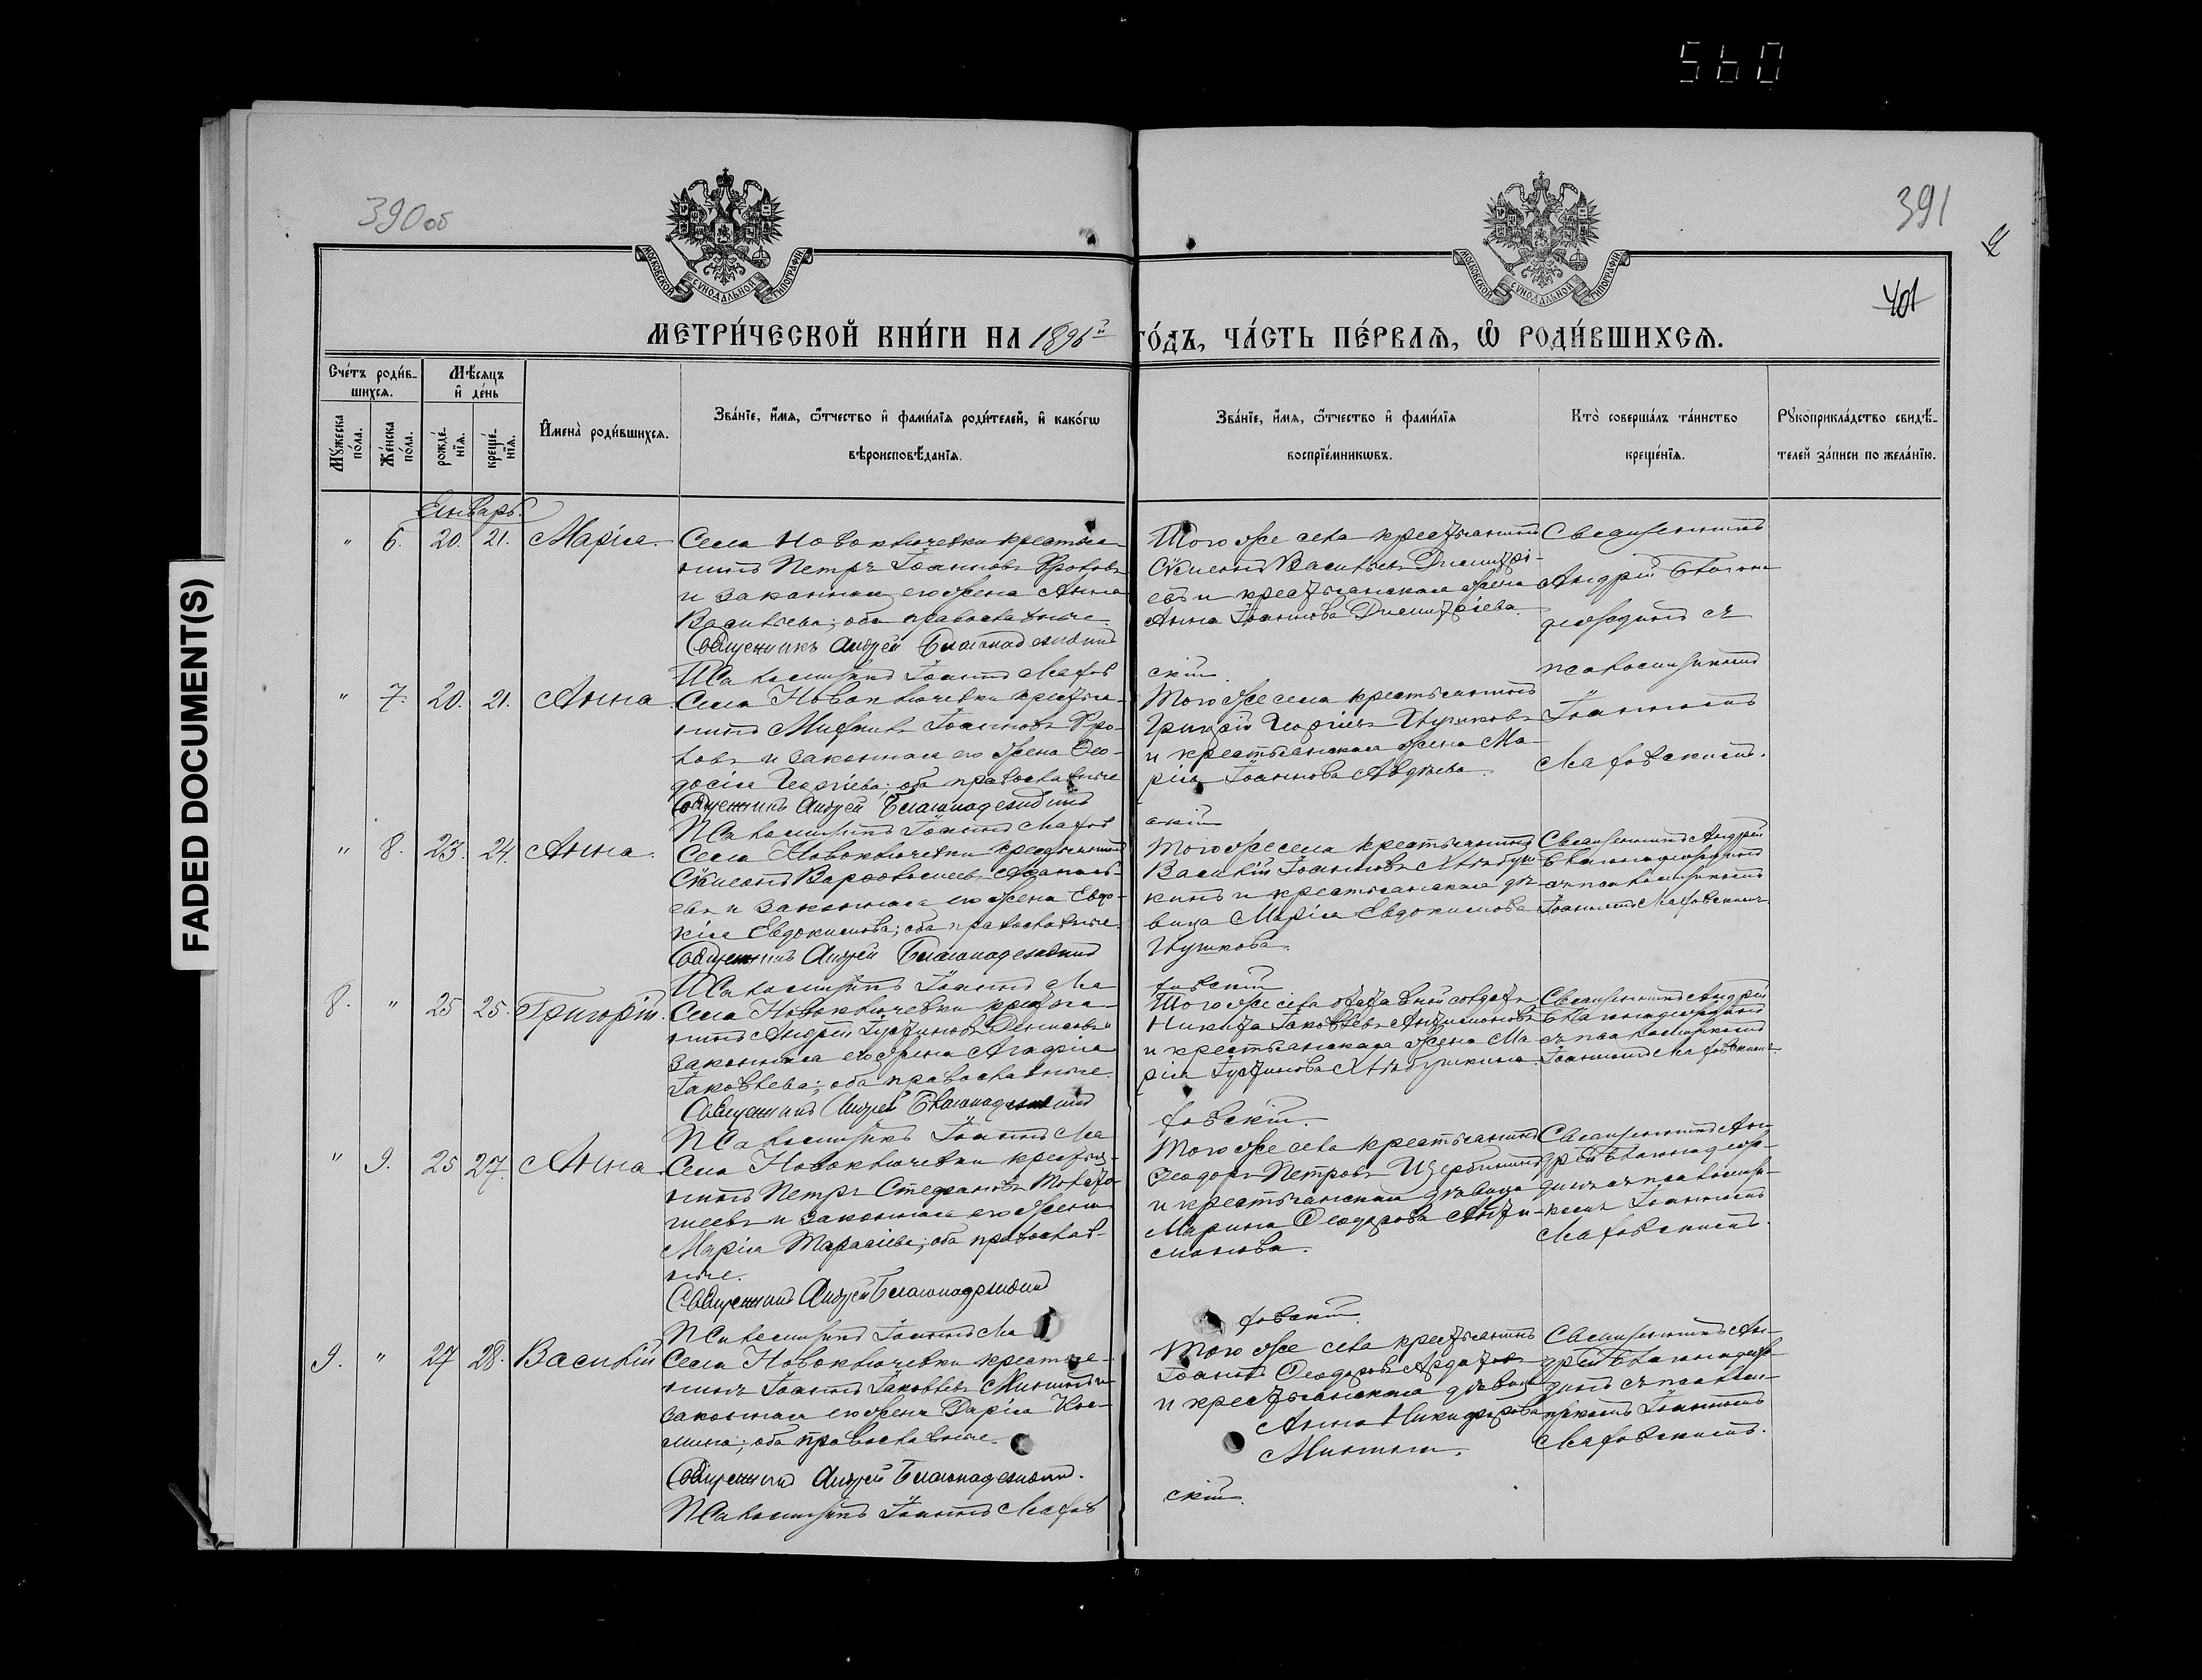 560
390 об
391
401
МОСКОВСКОЙ СѴНОДАЛЬНОЙ ТИПОГРАФІИ
МОСКОВСКОЙ СѴНОДАЛЬНОЙ ТИПОГРАФІИ
МЕТРИ́ЧЕСКОЙ КНИ́ГИ НА 1896й ГО́ДЪ, ЧА́СТЬ ПЕ́РВАѦ, Ѡ РОДИ́ВШИХСѦ.
Сче́тъ роди́в-
шихсѧ.
Мѣ́сяцъ
и де́нь
Мꙋжеска по́ла.
Же́нска по́ла.
рожде́-нїѧ.
креще́-нїѧ.
Имена̀ роди́вшихсѧ.
Зва́нїе, и́мѧ, ѻ́тчество и фами́лїѧ роди́телей, и како́гѡ
вѣроисповѣ́данїѧ.
Зва́нїе, и́мѧ, ѻ́тчество и фами́лїѧ
воспрїе́мникѡвъ.
Кто̀ соверша́лъ та́инство
креще́нїѧ.
Рꙋкоприкла́дство свидѣ́-
телей за́писи по жела́нїю.
Январь.
" 6. 20. 21. Марія.
Села Новоключевки крестья-
нинъ Петръ Іоанновъ Фроловъ
и законная его жена Анна
Васильева; оба православные.
Священникъ Андрей Благонадеждинъ
Псаломщикъ Іоаннъ Малов
скій.
Того же села крестьянинъ
Сѵмеонъ Васильевъ Димитрі-
евъ и крестьянская жена
Анна Іоаннова Димитріева.
Священникъ
Андрей Благона
деждинъ съ
псаломщикомъ
Іоанномъ
Маловскимъ.
" 7. 20. 21. Анна
Села Новоключевки крестья-
нинъ Михаилъ Іоанновъ Фро-
ловъ и законная его жена Ѳео-
досія Георгіева; оба православные
Священникъ Андрей Благонадеждинъ
Псаломщикъ Іоаннъ Малов
скій
Того же села крестьянинъ
Григорій Георгіевъ
и крестьянская жена Ма-
рія Іоаннова Авдѣева.
" 8. 23. 24. Анна.
Села Новоключевки крестьянинъ
Сѵмеонъ Варѳоломеевъ
евъ и законная его жена Евдо-
кія Евдокимова; оба православные.
Священникъ Андрей Благонадеждинъ
Псаломщикъ Іоаннъ Ма
ловскій
Того же села крестьянинъ
Василій Іоанновъ Хлѣбуш-
кинъ и крестьянская дѣ-
вица Марія Евдокимова
Священникъ Андрей
Благонадеждинъ
съ псаломщикомъ
Іоанномъ Маловскимъ
8. " 25 25. Григорій.
Села Новоключевки крестья-
нинъ Андрей Іустиновъ Денисовъ и
законная его жена Агафія
Іаковлева; оба православные.
Священникъ Андрей Благонадеждинъ
Псаломщикъ Іоаннъ Ма
ловскій.
Того же села отставной солдатъ
Никита Іаковлевъ Антимоновъ
и крестьянская жена Ма
рія Іустинова Хлѣбушкина.
Священникъ Андрей
Благонадеждинъ
съ псаломщикомъ
Іоанномъ Маловскимъ.
" 9. 25 27. Анна.
Села Новоключевки крестья-
нинъ Петръ Стефановъ
и законная его жена
Марія Тарасіева; оба православ-
ные.
Священникъ Андрей Благонадеждинъ
Псаломщикъ Іоаннъ Ма
ловскій
Того же села крестьянинъ
Ѳеодоръ Петровъ Щербининъ
и крестьянская дѣвица
Марина Ѳеодорова Анти-
монова.
Священникъ Ан-
дрей Благонадеж-
динъ съ псаломщи-
комъ Іоанномъ
Маловскимъ.
9. " 27 28. Василій
Села Новоключевки крестья-
нинъ Іоаннъ Іаковлевъ и
законная его жена Дарія Кос-
мина; оба православные.
Священникъ Андрей Благонадеждинъ.
Псаломщикъ Іоаннъ Малов
скій.
Того же села крестьянинъ
Іоаннъ Ѳеодоровъ Ардатов
и крестьянская дѣвица
Анна Никифорова
Священникъ Ан-
дрей Благонадеж-
динъ съ псалом-
щикомъ Іоанномъ
Маловскимъ.
FADED DOCUMENT(S)